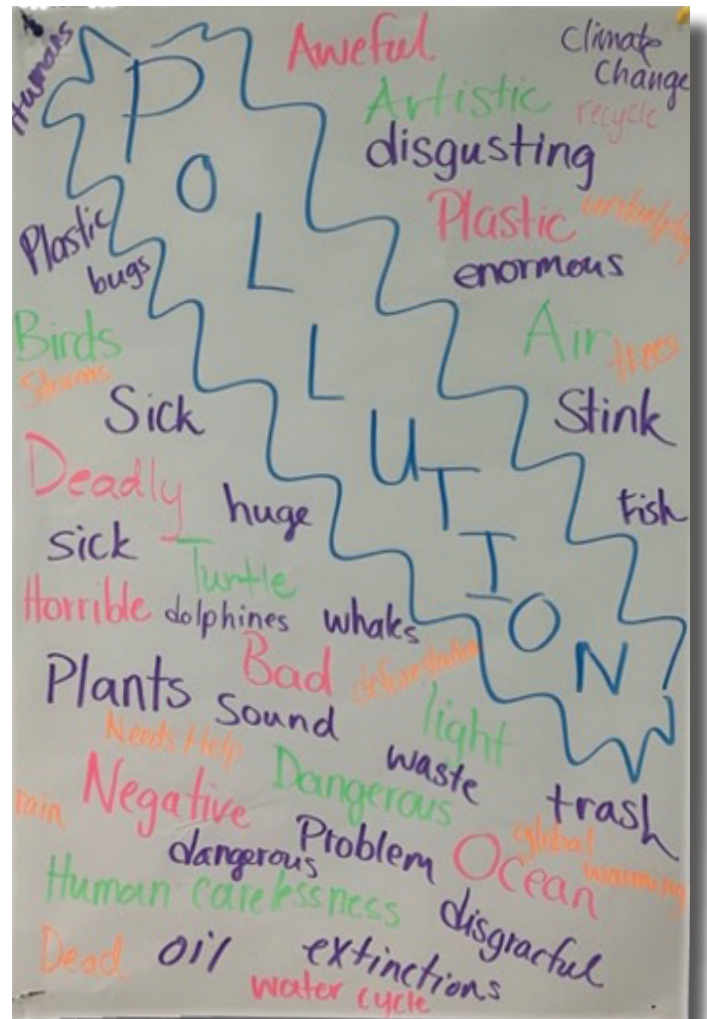 Humans
POLLUTION
Aweful
Climate
Change
Artistic
recycle
disgusting
Plastic
unhelpful
enormous
Plastic
bugs
Birds
Storms
Air
trees
Sick
Stink
Deadly
huge
fish
sick
Turtle
Horrible
dolphines
whales
Bad
deforestation
Plants
sound
light
Needs Help
waste
Dangerous
trash
rain
Negative
Problem
global
warming
dangerous
Ocean
Human carelessness
disgracful
Dead
oil
extinctions
water cycle